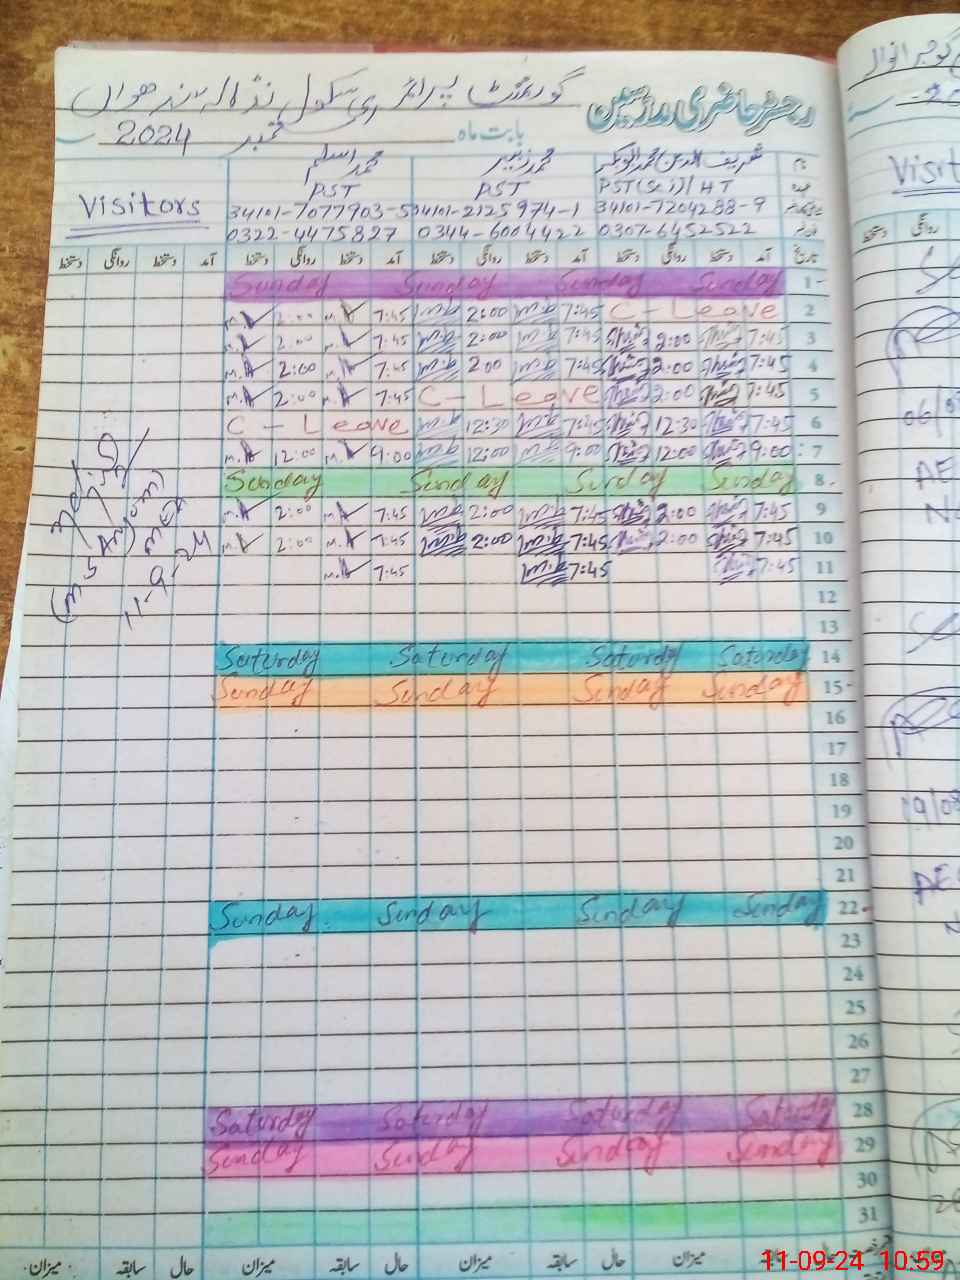 رجسٹر حاضری مدرسین گورنمنٹ پرائمری سکول ننڈالہ سندھواں
بابت ماہ ستمبر 2024
شریف الدین محمد ابوبکر محمد زبیر محمد اسلم
PST(Sci)/HT PST PST
Visitors
34101-7204288-9 34101-2125974-1 34101-7077903-5
0307-6452522 0344-6004422 0322-4475827
تاریخ آمد دستخط روانگی دستخط آمد دستخط روانگی دستخط آمد دستخط روانگی دستخط آمد دستخط روانگی دستخط
Sunday Sunday Sunday Sunday 1
M.A 2:00 M.A 7:45 m.b 2:00 m.b 7:45 C - Leave 2
M.A 2:00 M.A 7:45 m.b 2:00 m.b 7:45 2:00 7:45 3
M.A 2:00 M.A 7:45 m.b 2:00 m.b 7:45 2:00 7:45 4
M.A 2:00 M.A 7:45 C - Leave 2:00 7:45 5
C - Leave m.b 12:30 m.b 7:45 12:30 7:45 6
M.A 12:00 M.A 9:00 m.b 12:00 m.b 9:00 12:00 9:00 7
Sunday Sunday Sunday Sunday 8
M.A 2:00 M.A 7:45 m.b 2:00 m.b 7:45 2:00 7:45 9
M.A 2:00 M.A 7:45 m.b 2:00 m.b 7:45 2:00 7:45 10
M.A 7:45 m.b 7:45 7:45 11
11-9-24
12
13
Saturday Saturday Saturday Saturday 14
Sunday Sunday Sunday Sunday 15
16
17
18
19
20
21
Sunday Sunday Sunday Sunday 22
23
24
25
26
27
Saturday Saturday Saturday Saturday 28
Sunday Sunday Sunday Sunday 29
30
31
حال سابقہ میزان حال سابقہ میزان حال سابقہ میزان
11-09-24 10:59